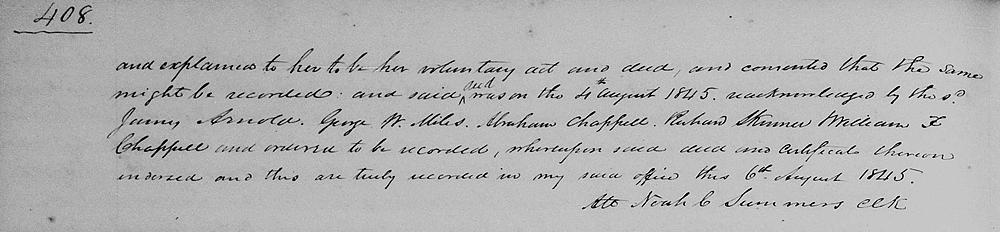 408.
and explained to her to be her voluntary act and deed, and consented that the same
might be recorded: and said deed was on the 4th August 1845. reacknowledged by the sd.
James Arnold. George W. Miles. Abraham Chappell. Richard Skinner William F
Chappell and ordered to be recorded, whereupon said deed and certificate thereon
endorsed and this are truly recorded in my said office this 6th August 1845.
Att Noah C Summers clk